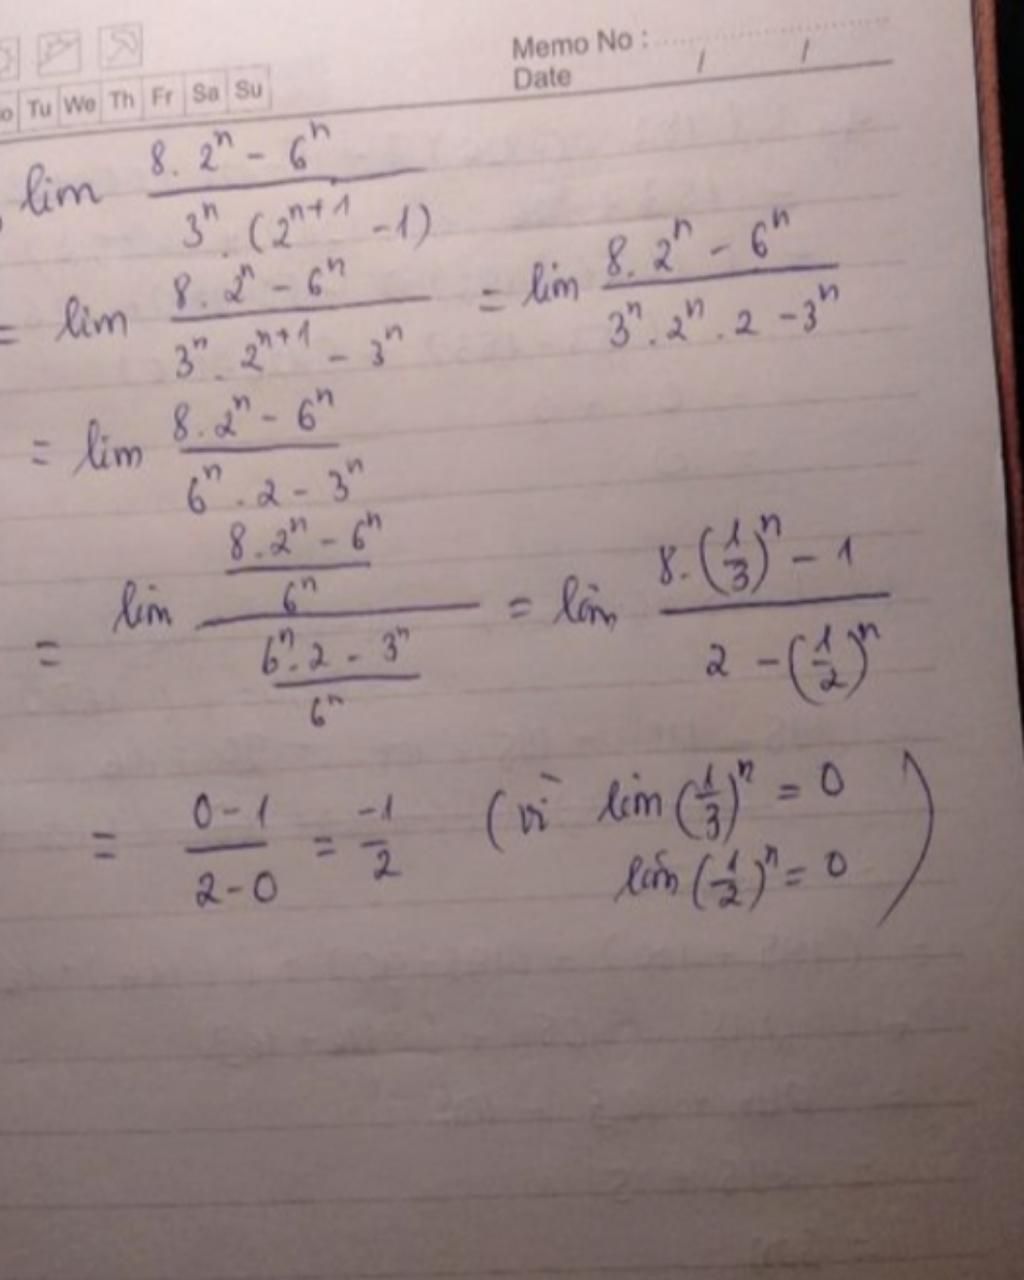 Memo No :
Date / /
Tu We Th Fr Sa Su
lim \frac{8 . 2^n - 6^n}{3^n . (2^{n+1} - 1)}
= lim \frac{8 . 2^n - 6^n}{3^n . 2^{n+1} - 3^n} = lim \frac{8 . 2^n - 6^n}{3^n . 2^n . 2 - 3^n}
= lim \frac{8 . 2^n - 6^n}{6^n . 2 - 3^n}
= lim \frac{\frac{8 . 2^n - 6^n}{6^n}}{\frac{6^n . 2 - 3^n}{6^n}} = lim \frac{8 . (\frac{1}{3})^n - 1}{2 - (\frac{1}{2})^n}
= \frac{0 - 1}{2 - 0} = \frac{-1}{2} (vì lim (\frac{1}{3})^n = 0
lim (\frac{1}{2})^n = 0 )